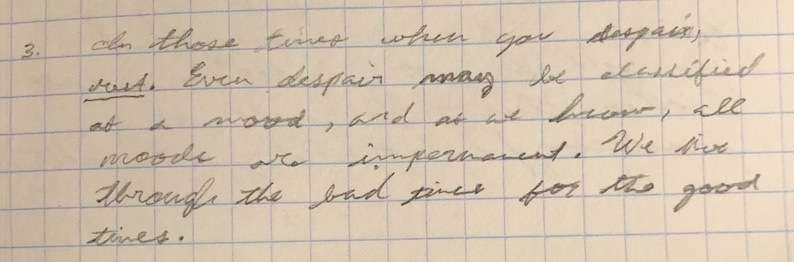 3. In those times when you despair,
rest. Even despair may be classified
as a mood, and as we know, all
moods are impermanent. We live
through the bad times for the good
times.